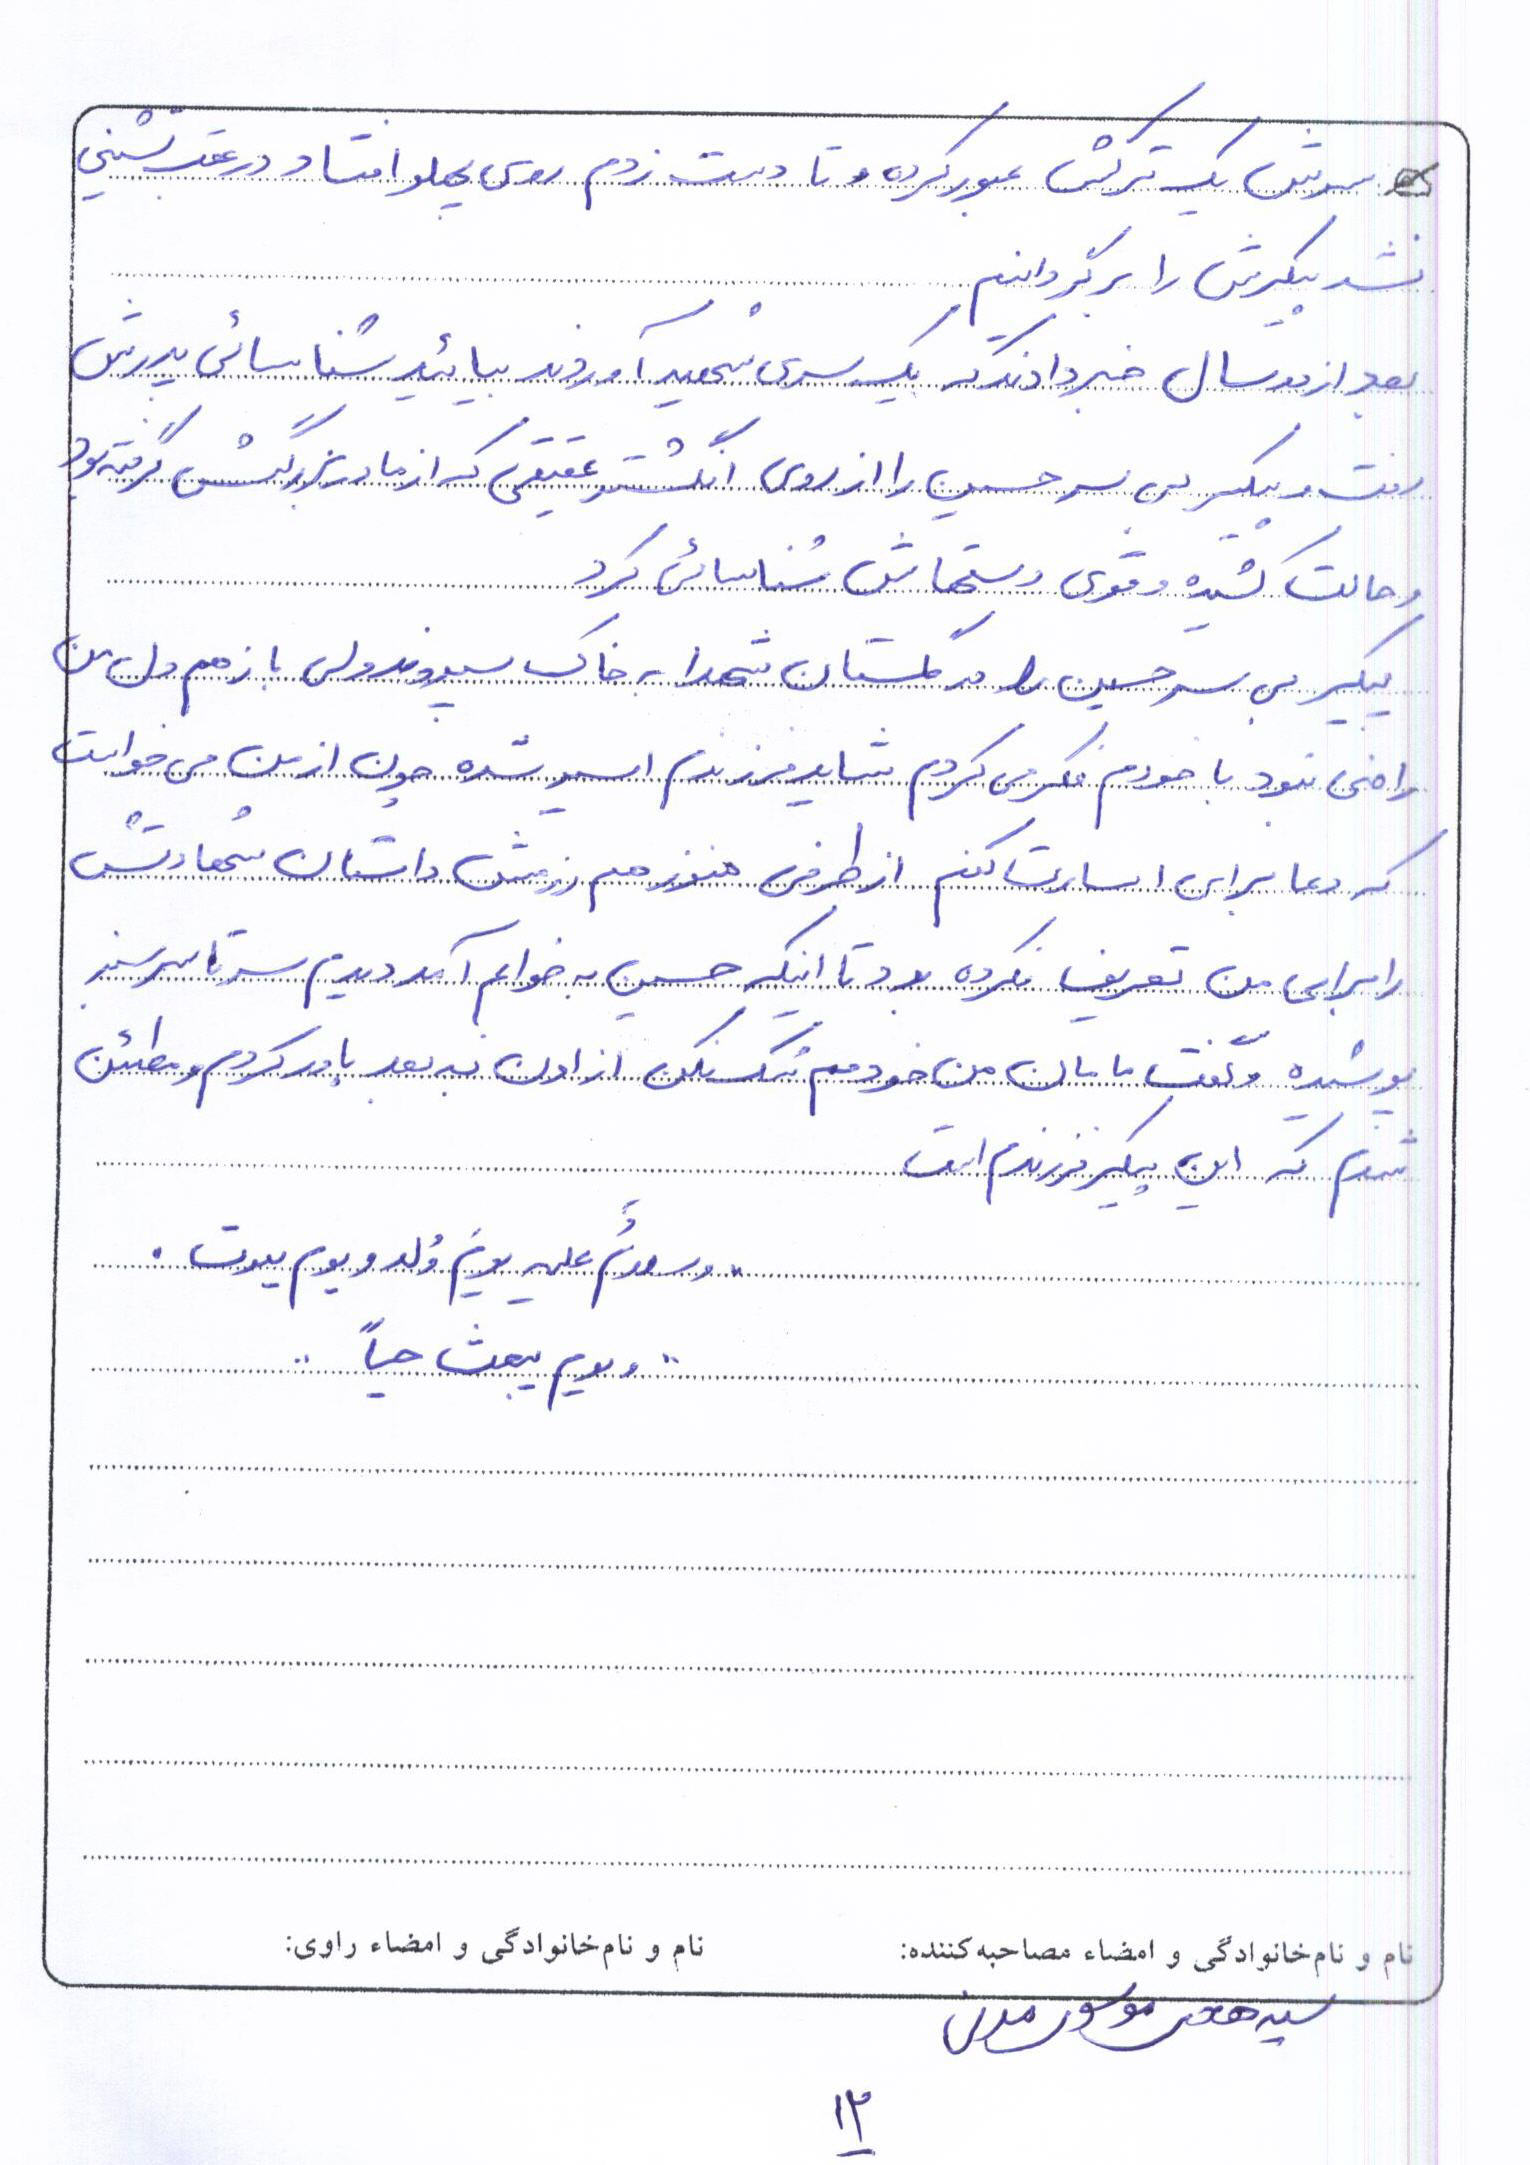 سرش یک ترکش عبور کرده و تا دست زدم روی پهلو افتاد و در عقب نشینی
نشد پیکرش را برگردانیم
بعد از دو سال خبر دادند که یک سری شهید آوردند بیائید شناسائی پدرش
رفت و پیکر بی سر حسین را از روی انگشتر عقیقی که از مادر بزرگش گرفته بود
و حالت کشیده و قوی دستهاش شناسائی کرد
پیکر بی سر حسین را در گلستان شهدا به خاک سپردند ولی باز هم دل من
راضی نبود با خودم فکر می کردم شاید فرزندم اسیر شده چون از من می خواست
که دعا برای اسارت کنم از طرفی هنوز هم رزمش داستان شهادتش
را برای من تعریف نکرده بود تا اینکه حسین به خوابم آمد دیدم سر تا سر سبز
پوشیده و گفت مامان من خودمم شک نکن از اون به بعد باور کردم و مطمئن
شدم که این پیکر فرزندم است
"وسلامٌ علیه یومَ وُلد و یوم یموت .
"و یوم یبعث حیاً "
نام و نام‌خانوادگی و امضاء مصاحبه‌کننده: نام و نام‌خانوادگی و امضاء راوی:
سید موسوی مدنی
۱۲